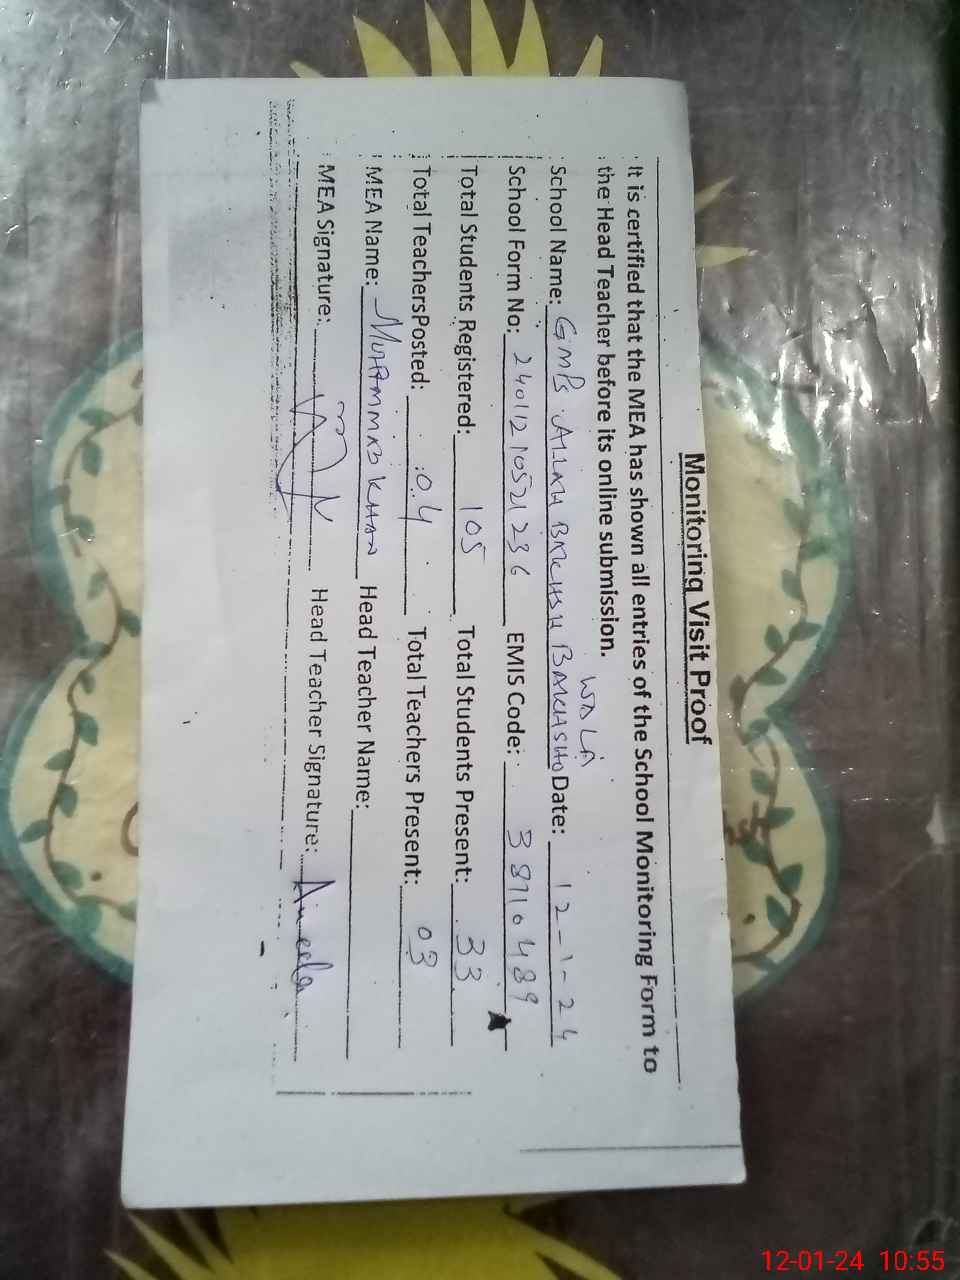 Monitoring Visit Proof
It is certified that the MEA has shown all entries of the School Monitoring Form to
the Head Teacher before its online submission.
WALA
School Name: GMPS ALLAH BAKHSH BAKHSHO Date: 12-1-24
School Form No: 24011210521236 EMIS Code: 38710489
Total Students Registered: 105 Total Students Present: 33
Total TeachersPosted: 04 Total Teachers Present: 03
MEA Name: MUHAMMAD KHAN Head Teacher Name:
MEA Signature: Head Teacher Signature:
12-01-24 10:55